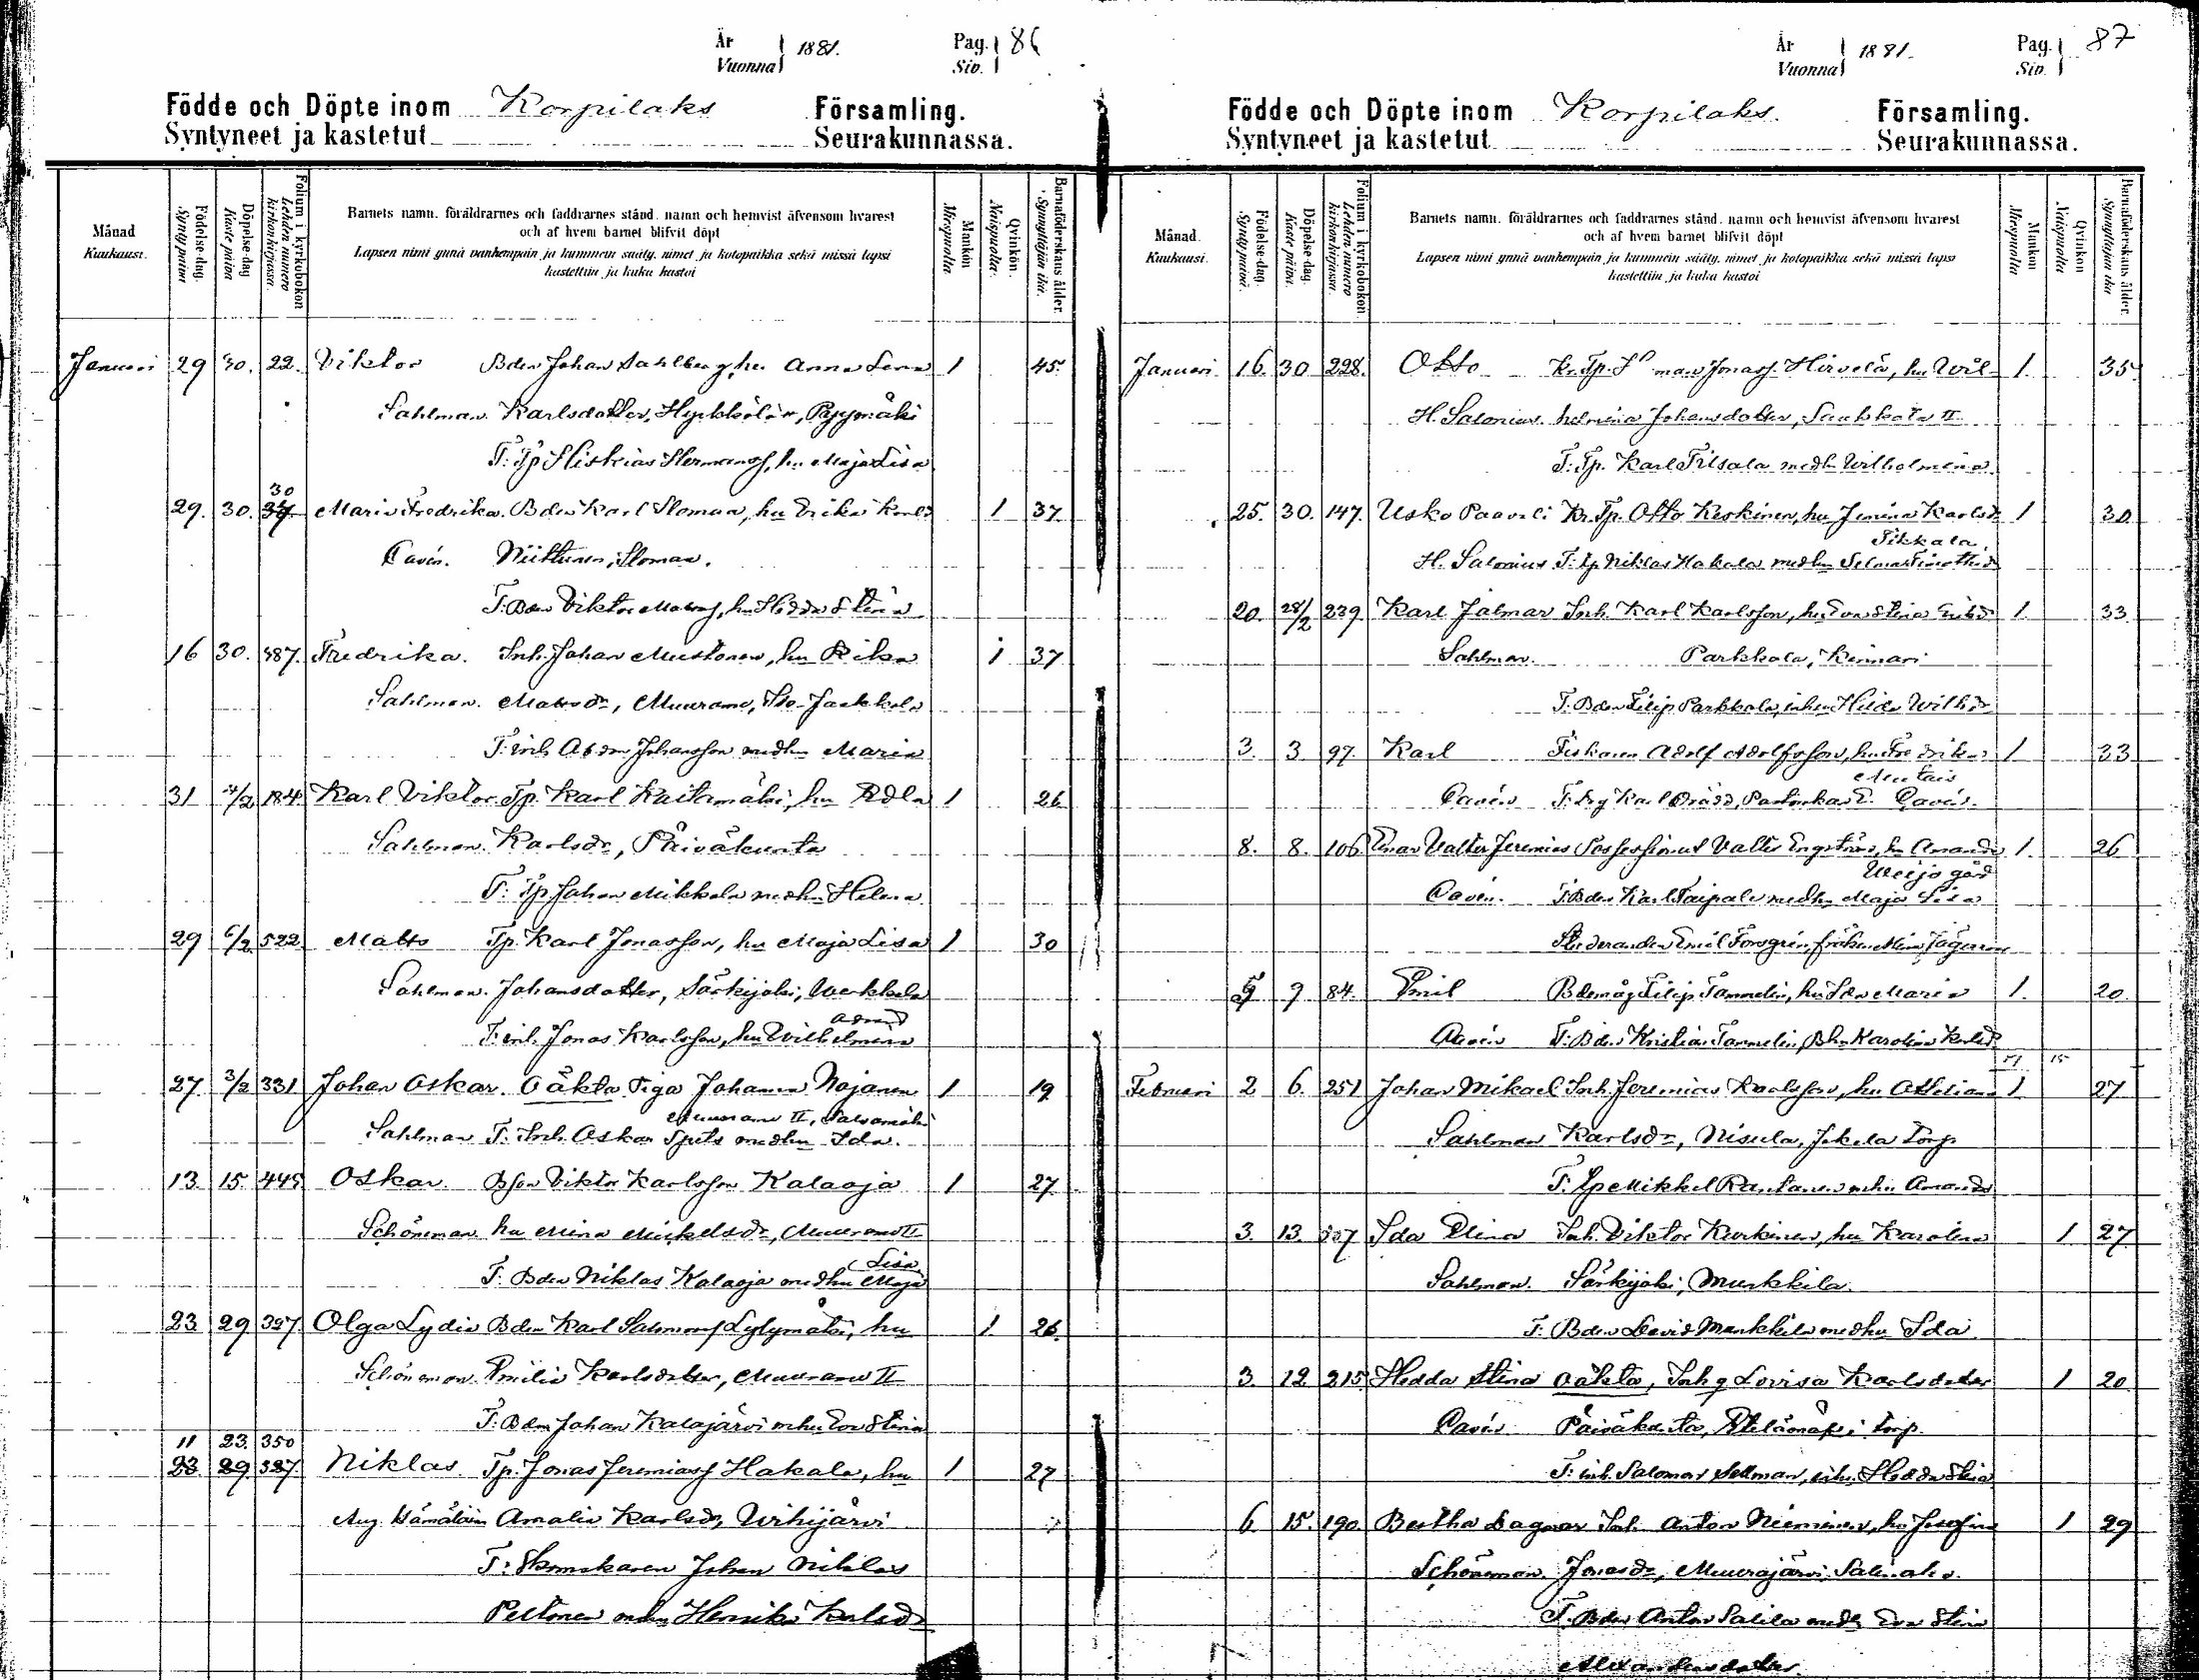 År Vuonna 1881. Pag. Siv. 86
Födde och Döpte inom Korpilaks Församling.
Syntyneet ja kastetut Seurakunnassa.
Månad Kuukausi.
Födelse-dag. Syntypäivä
Döpelse-dag Kastepäivä
Folium i kyrkoboken Lehden numero kirkonkirjassa.
Barnets namn, föräldrarnes och faddrarnes stånd, namn och hemvist äfvensom hvarest
och af hvem barnet blifvit döpt
Lapsen nimi ynnä vanhempain ja kummein sääty, nimet ja kotopaikka sekä missä lapsi
kastettiin ja kuka kastoi
Mankön Miespuolta.
Qvinkön. Naispuolta.
Barnaföderskans ålder. Synnyttäjän ikä.
Januari 29 30. 22. Viktor Bden Johan Sahlberg, hu Anna Lena 1 45.
Sahlman. Karlsdotter, Hyrkkölä, Pappmäki
F: Tp Hiskias Hermansf, hu Maja Lisa
30
29. 30. 37 Maria Fredrika. Bden Karl Sloman, hu Erika Karlsd 1 37
Cavén. Niittunen, Sloman.
F: Bden Viktor Matsf, hu Hedda Stina
16 30. 487. Fredrika. Inh. Johan Mustonen, hu Rika 1 37
Sahlman. Matsdr, Muurame, Jaakkola
F: inh Johansson medhu Maria
31 4/2 184 Karl Viktor Tp. Karl Raikamäki, hu Adla 1 26
Sahlman. Karlsdr, Päiväkunta
F: Tp Johan Mikkola medhu Helena
29 6/2 522 Matts Tp. Karl Jonasson, hu Maja Lisa 1 30
Sahlman. Johansdotter, Särkijoki, Werkkala
F: inh. Jonas Karlsson, hu Wilhelmina
27. 3/2 331 Johan Oskar. Oäkta Piga Johanna Nojanen 1 19
Muurame II, Salomäki
Sahlman F: Inh. Oskar Spets medhu Ida.
13. 15. 445 Oskar. Bson Viktor Karlsson Kalaoja 1 27
Schöneman. hu Mina Mickelsdr, Muurame II
Lisa
F: Bden Niklas Kalaoja medhu Maja
23. 29 327. Olga Lydia Bden Karl Salomonsf Lylymäki, hu 1 26.
Schöneman. Emilia Karlsdotter, Muurame II
F: Bden Johan Kalajärvi mhu Eva Stina
11 23. 350
23 29 327. Niklas. Tp. Jonas Jeremiasf Hakala, hu 1 27
Aug. Hämäläin Amalia Karlsdr, Wihijärvi
F: Skomakaren Johan Niklas
Peltonen mhu Henrika Karlsdr
År Vuonna 1881. Pag. Siv. 87
Födde och Döpte inom Korpilaks. Församling.
Syntyneet ja kastetut Seurakunnassa.
Månad. Kuukausi.
Födelse-dag. Syntypäivä.
Döpelse-dag. Kastepäivä.
Folium i kyrkoboken. Lehden numero kirkonkirjassa.
Barnets namn, föräldrarnes och faddrarnes stånd, namn och hemvist äfvensom hvarest
och af hvem barnet blifvit döpt
Lapsen nimi ynnä vanhempain ja kummein sääty, nimet ja kotopaikka sekä missä lapsi
kastettiin ja kuka kastoi
Mankön Miespuolta
Qvinkön Naispuolta
Barnaföderskans ålder. Synnyttäjän ikä
Januari 16. 30 228. Otto Kr. Tp. Jonasf. Hirvelä, hu Wil- 1. 35
H. Salonius. helmina Johansdotter, Saukkola II
F: Tp. Karl Tiisala medhu Wilhelmina.
25. 30. 147. Usko Paavali Kr. Tp. Otto Keskinen, hu Jemina Karlsd 1 30
Tikkala,
H. Salonius F: Tp Niklas Hakala medhu Selma
20. 28/2 239 Karl Jalmar Inh. Karl Karlsson, hu Eva Stina 1. 33
Sahlman. Parkkola, Kinnari
F: Bden Filip Parkkola, inhu Hilda Wilhdr
3. 3 97. Karl Fiskaren Adolf Adolfsson, hu Fredrika 1 33
Cavén F: Karl Cavén.
8. 8. 106 Einar Valter Jeremias Possessionat Valter Engström, hu Amanda 1. 26
Weijo gård
Cavén. F: Bden Karl Taipale medhu Maja Lisa
Studeranden Emil Forsgrén, fröken Mina
9 84. Emil Bdemåg Filip Tammelin, hu Ida Maria 1. 20.
Cavén F: Bden Kristian Tammelin, Bhu Karolina Karlsd
15
Februari 2 6. 251 Johan Mikael Inh. Jeremias Karlsson, hu 1. 27
Sahlman Karlsdr, Nisula, Jokela torp
F: Tp Mikkel Rantanen mhu Amanda
3. 13. 327 Ida Elina Inh. Viktor Kurkinen, hu Karolina 1 27
Sahlman. Särkijoki, Murkkila.
F: Bden David Markkila medhu Ida
3. 12. 215 Hedda Stina Oäkta, Inh q Lovisa Karlsdotter 1 20
Cavén Päiväkunta, Etelämäki torp.
F: inh. Salomon Sellman, inhu. Hedda Stina
6 15. 190. Bertha Dagmar Inh. Anton Nieminen, hu Josefina 1 29
Schöneman. Jonasdr, Muurajärvi,
F: Bden Anton Salila medhu Eva Stina
Alexandersdotter.